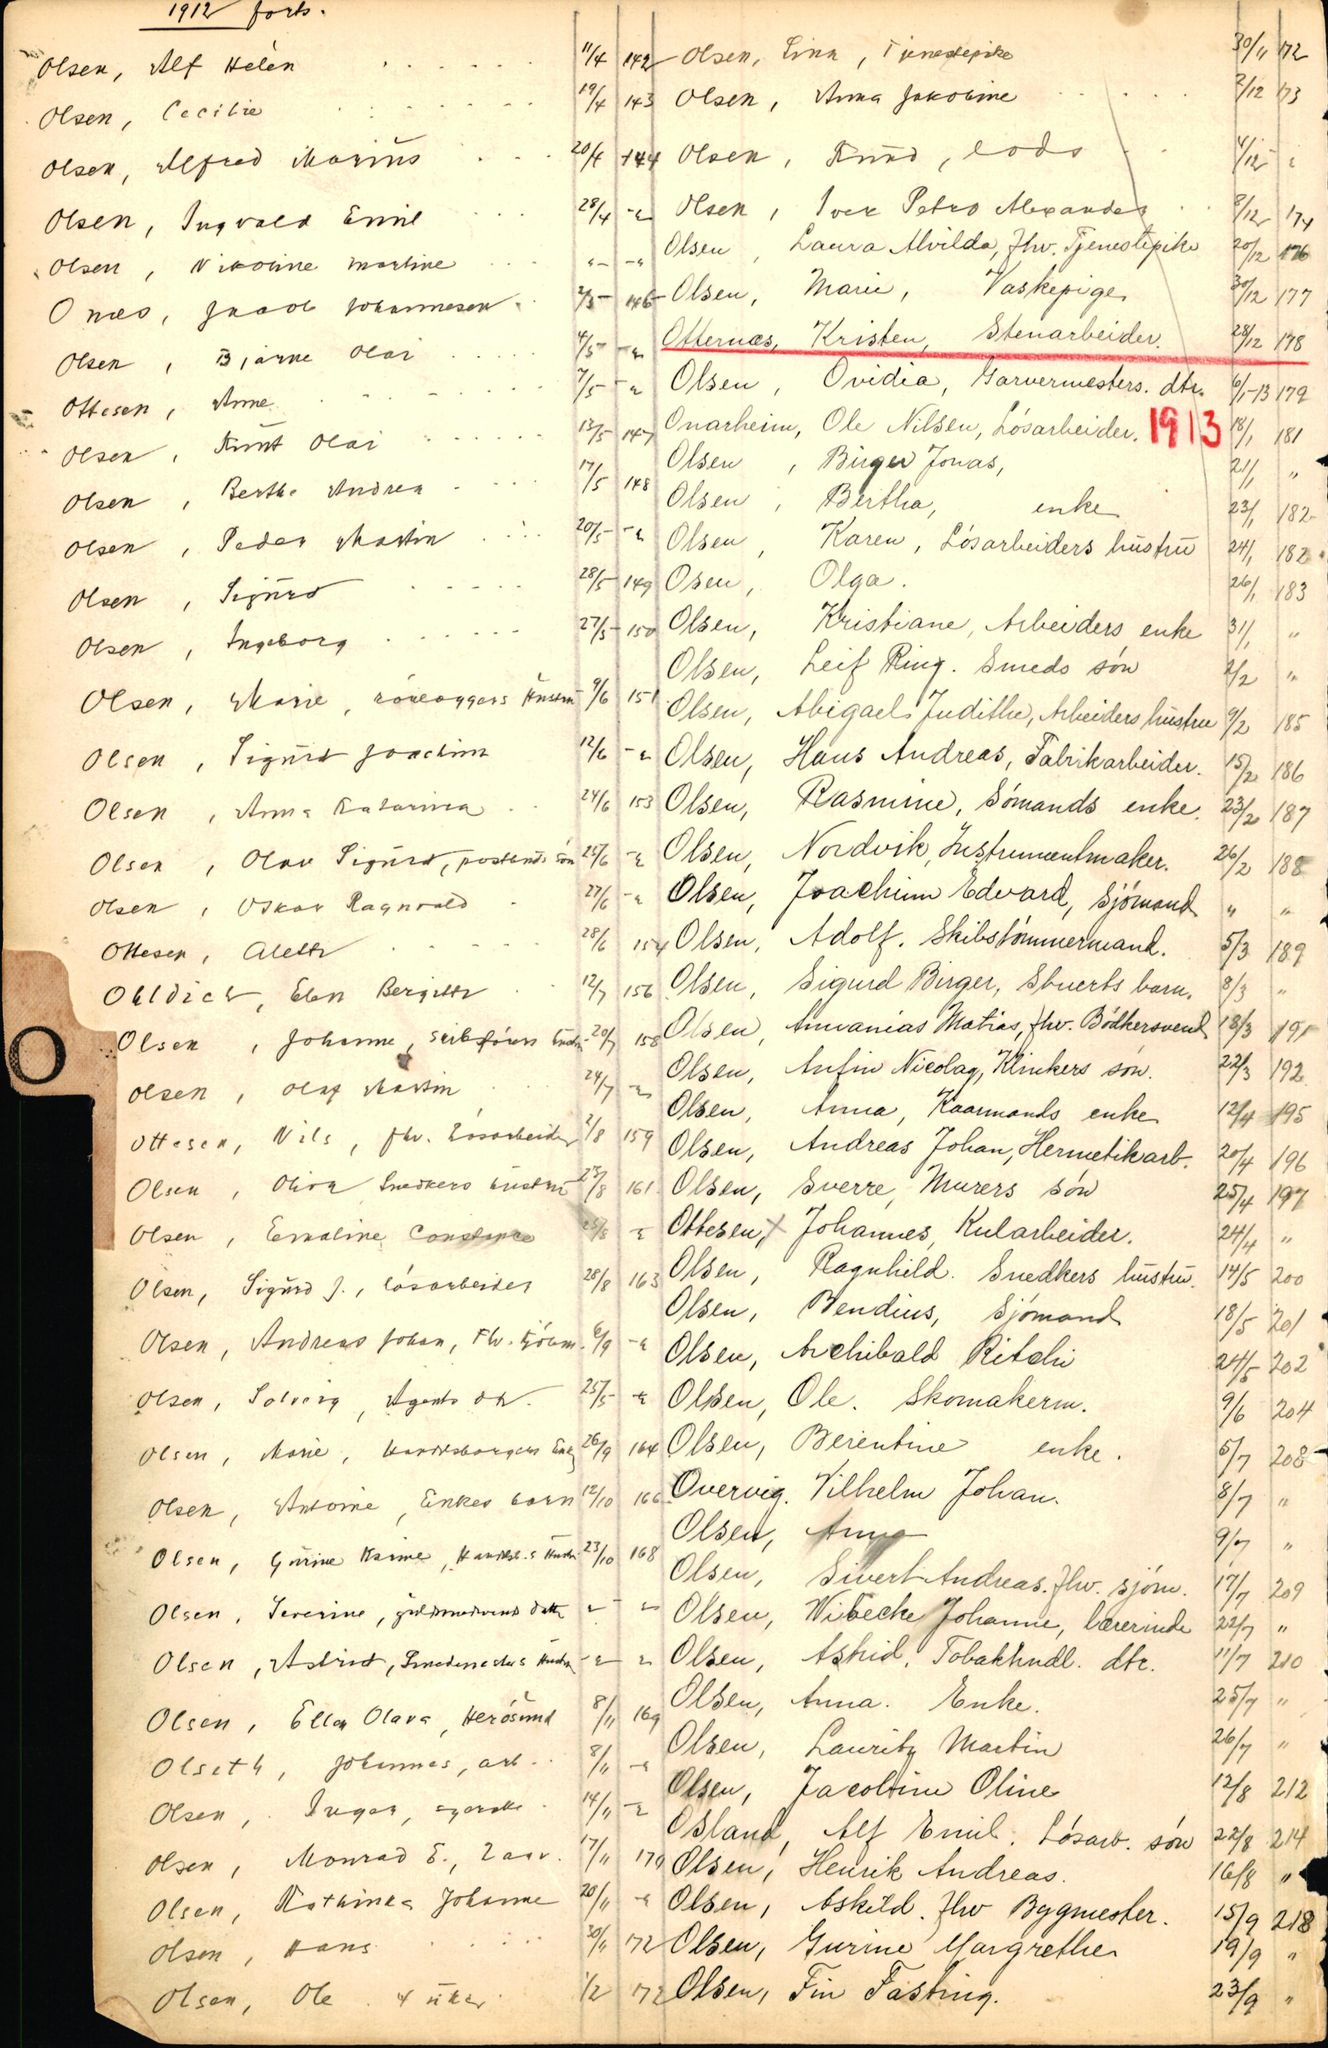 1912 forts.
Olsen, Alf Helén 11/4 142
Olsen, Cecilie 19/4 143
Olsen, Alfred Marius 20/4 144
Olsen, Ingvald Emil 28/4 -"
Olsen, Nikoline Martine "- -"
Onæs, Jacob Johannesen 2/5 146
Olsen, Bjarne Olai 4/5 -"
Ottesen, Anne 7/5 -"
Olsen, Knut Olai 13/5 147
Olsen, Berthe Andrea 17/5 148
Olsen, Peder Martin 20/5 -"
Olsen, Sigurd 28/5 149
Olsen, Ingeborg 27/5 150
Olsen, Marie, 9/6 151
Olsen, Sigurd Joachim 12/6 -"
Olsen, Anna Katarina 24/6 153
Olsen, Olav Sigurd, søn 25/6 -"
Olsen, Oskar Ragnvald 27/6 -"
Ottesen, Alette 28/6 154
Ohldick, Elen Bergitte 12/7 156
Olsen, Johanne, 20/7 158
Olsen, Olaf Martin 24/7 -"
Ottesen, Nils, fhv. Løsarbeider 2/8 159
Olsen, Oliva Snedkers hustru 23/8 161
Olsen, Emaline Constance 25/8 "
Olsen, Sigurd J., løsarbeider 28/8 163
Olsen, Andreas Johan, Fhv. sjøm. 6/9 -"
Olsen, Solveig, Agents dtr. 25/5 -"
Olsen, Marie, Enke 26/9 164
Olsen, Antoine, Enkes barn 12/10 166
Olsen, Gurine 23/10 168
Olsen, Severine, datter "- -"
Olsen, Astrid, Smedmesters hustru -"- "
Olsen, Ellen Olava, Herøsund 8/11 169
Olseth, Johannes, arb. 8/11 -"
Olsen, Inger, 14/11 -"
Olsen, Monrad E., 17/11 170
Olsen, Kathinka Johanne 20/11 -"
Olsen, Hans 30/11 172
Olsen, Ole 1/2 172
Olsen, Lina, Tjenestepike 30/11 172
Olsen, Anna Jakobine 2/12 173
Olsen, Knud, lods 4/12 "
Olsen, Iver Petro Alexander 8/12 174
Olsen, Laura Alvilda, fhv. Tjenestepike 20/12 176
Olsen, Marie, Vaskepige 30/12 177
Otternæs, Kristen, Stenarbeider. 28/12 178
Olsen, Ovidia, Garvermesters. dtr. 6/1-13 179
Onarheim, Ole Nilsen, Løsarbeider. 1913 18/1 181
Olsen, Birger Jonas, 21/1 "
Olsen, Bertha, enke 23/1 182
Olsen, Karen, Løsarbeiders hustru 24/1 182
Osen, Olga. 26/1 183
Olsen, Kristiane, Arbeiders enke 31/1 "
Olsen, Leif Ring. Smeds søn 2/2 "
Olsen, Abigael Judithe, Arbeiders hustru 9/2 185
Olsen, Hans Andreas, Fabrikarbeider. 15/2 186
Olsen, Rasmine, Sømands enke. 23/2 187
Olsen, Nordvik, Instrumentmaker. 26/2 188
Olsen, Joachim Edvard, Sjømand " "
Olsen, Adolf. Skibstømmermand. 5/3 189
Olsen, Sigurd Birger, Stuerts barn. 8/3 "
Olsen, Annanias Matias, fhv. Bødkersvend 18/3 191
Olsen, Anfin Nicolay, Klinkers søn. 22/3 192
Olsen, Anna, Kaarmands enke 12/4 195
Olsen, Andreas Johan, Hermetikarb. 20/4 196
Olsen, Sverre, Murers søn 25/4 197
Ottesen, Johannes, Kularbeider. 24/4 "
Olsen, Ragnhild. Snedkers hustru. 14/5 200
Olsen, Bendius, Sjømand 18/5 201
Olsen, Archibald Ritchi 24/5 202
Olsen, Ole. Skomakerm. 9/6 204
Olsen, Berentine enke. 5/7 208
Overvig. Vilhelm Johan. 8/7 "
Olsen, Anna 9/7 "
Olsen, Sivert Andreas. fhv. sjøm. 17/7 209
Olsen, Wibecke Johanne, lærerinde 22/7 "
Olsen, Astrid, Tobakhndl. dtr. 11/7 210
Olsen, Anna. Enke. 25/7 "
Olsen, Lauritz Martin 26/7 "
Olsen, Jacobine Oline 12/8 212
Osland, Alf Emil. Løsarb. søn 22/8 214
Olsen, Henrik Andreas. 16/8 "
Olsen, Askild. fhv Bygmester. 15/9 218
Olsen, Gurine Margrethe 19/9 "
Olsen, Fin Fasting. 23/9 "